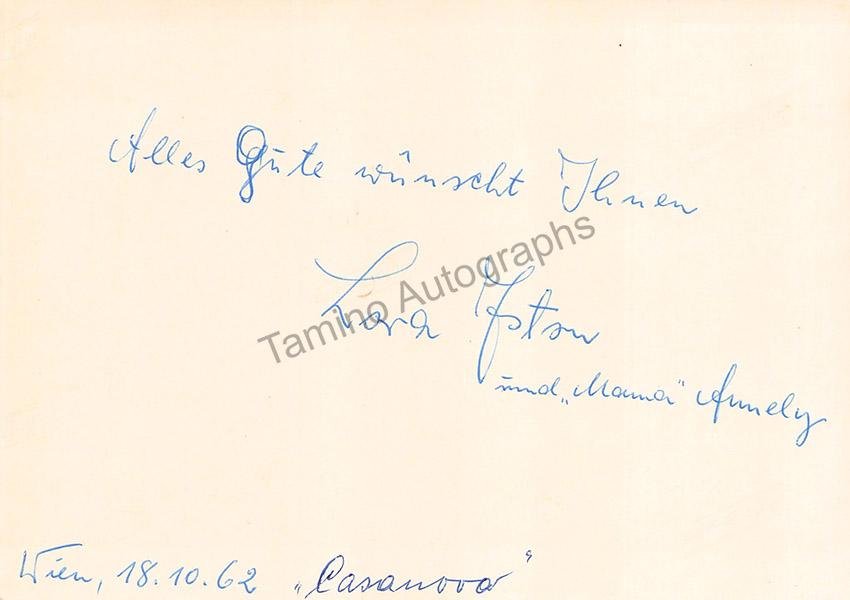 Alles Gute wünscht Ihnen
Lora Yston
und „Mama" Annely
Wien, 18.10.62 „Casanova"
Tamino Autographs